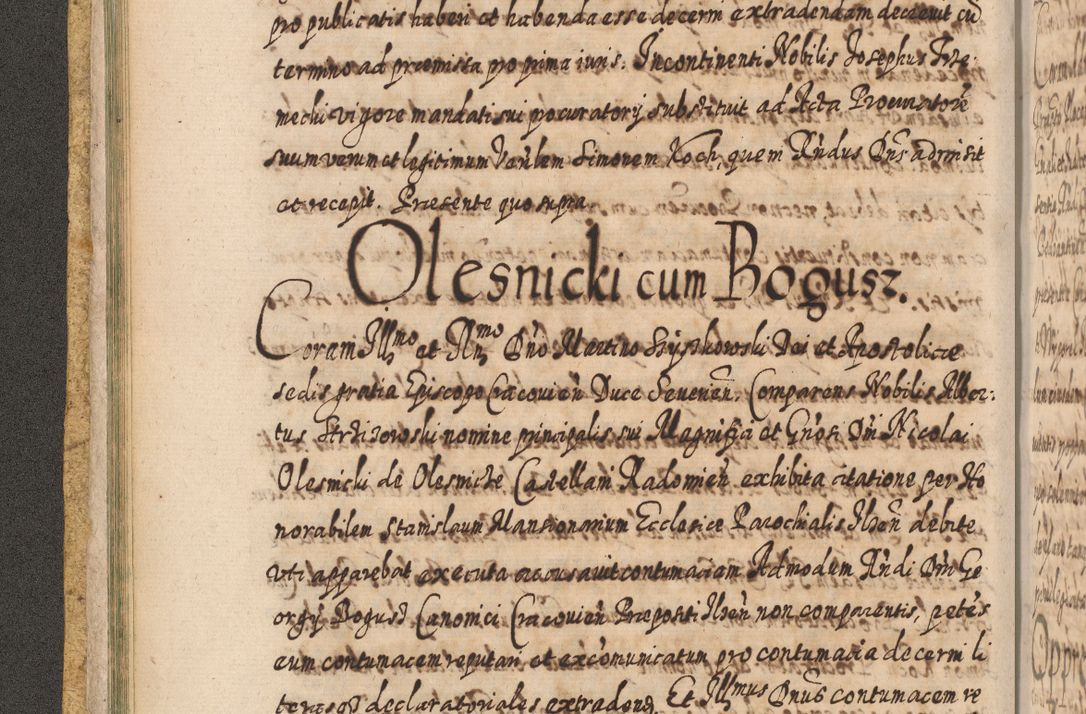 pro publicatis haberi et habenda esse decerni extradendam decrevit cũ
termino ad præmissa pro prima iuris. Incontinenti Nobilis Josephus
mechi vigore mandati sui procuratorÿ substituit ad Acta Procuratorẽ
suum verum et legitimum Simonem Koch, quem Rńdus Dńs admisit
et recepit. Præsente quo supra
Olesnicki cum Bogusz.
Coram Illmo et Rńmo Dńo Martino Szyszkowski Dei et Apostolicæ
sedis gratia Episcopo Cracovień Duce Severień. Comparens Nobilis Alber:
tus nomine principalis sui Magnifici et Gńosi Dńi Nicolai
Olesnicki de Olesnicke Castellani Radomień exhibita citatione per Ho
norabilem Stanislaum Mansionarium Ecclesiæ Parochialis Ilzeń debite
uti apparebat executa accusavit contumaciam Admodum Rńdi Dńi Ge
orgÿ Bogusz Canonici Cracovień Præpositi Ilzeń non comparentis, petẽs
eum contumacem reputari et excõmunicatum pro contumacia decerni li
terasq3 declaratoriales extradend Et Illmus Dnus contumacem re